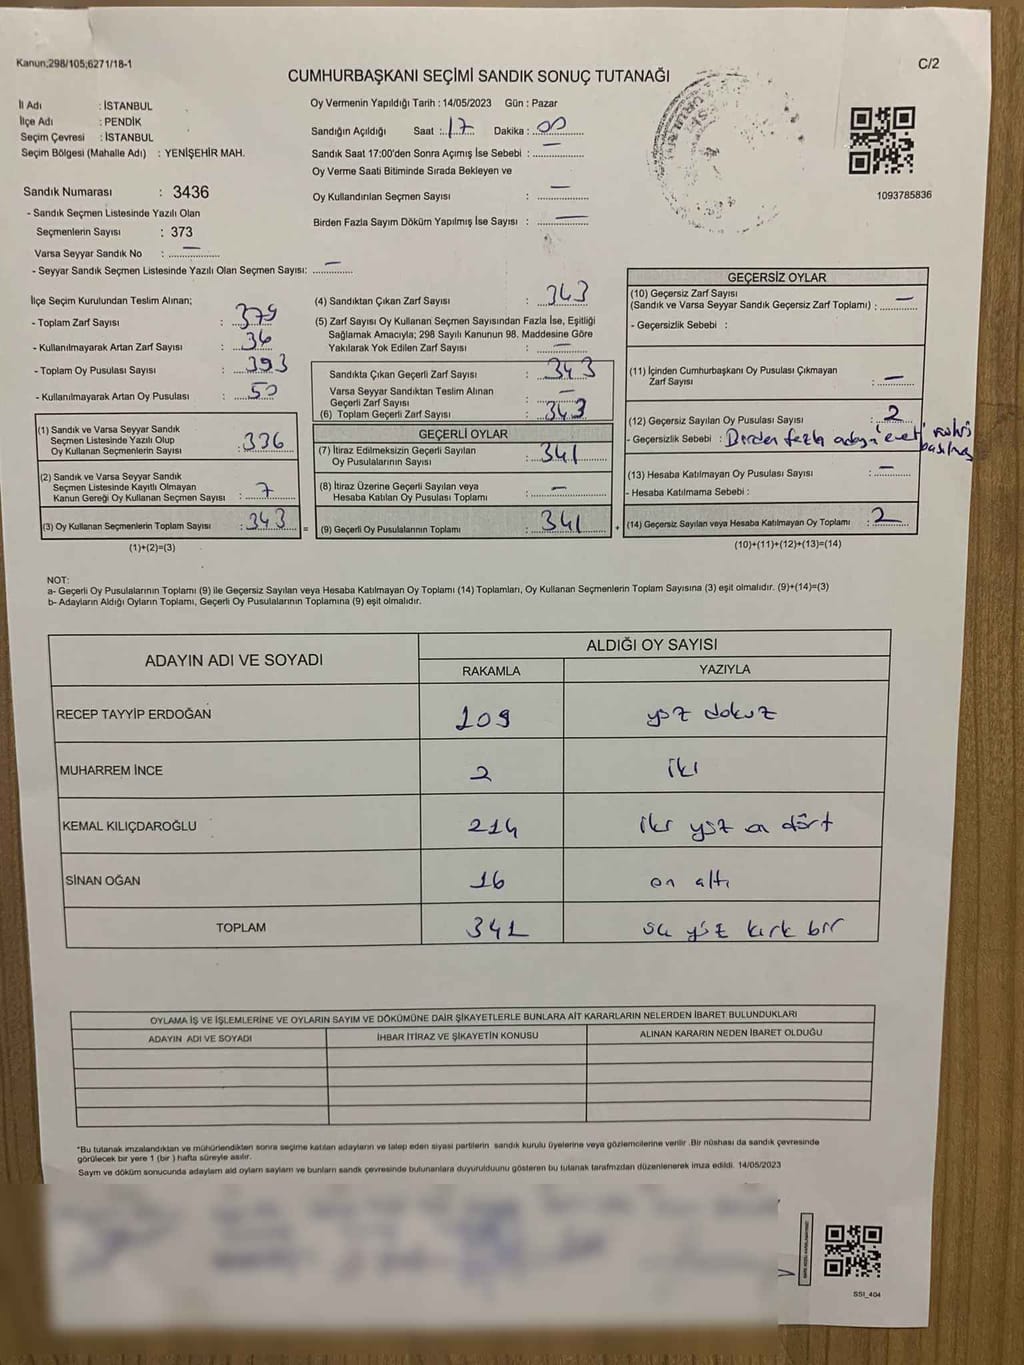 Kanun;298/105;6271/18-1
C/2
CUMHURBAŞKANI SEÇİMİ SANDIK SONUÇ TUTANAĞI
İl Adı : İSTANBUL
İlçe Adı : PENDİK
Seçim Çevresi : İSTANBUL
Seçim Bölgesi (Mahalle Adı) : YENİŞEHİR MAH.
Sandık Numarası : 3436
- Sandık Seçmen Listesinde Yazılı Olan
Seçmenlerin Sayısı : 373
Varsa Seyyar Sandık No : —
- Seyyar Sandık Seçmen Listesinde Yazılı Olan Seçmen Sayısı: —
Oy Vermenin Yapıldığı Tarih : 14/05/2023 Gün : Pazar
Sandığın Açıldığı Saat : 17 Dakika : 00
Sandık Saat 17:00'den Sonra Açımış İse Sebebi : —
Oy Verme Saati Bitiminde Sırada Bekleyen ve
Oy Kullandırılan Seçmen Sayısı : —
Birden Fazla Sayım Döküm Yapılmış İse Sayısı : —
1093785836
İlçe Seçim Kurulundan Teslim Alınan;
- Toplam Zarf Sayısı : 379
- Kullanılmayarak Artan Zarf Sayısı : 36
- Toplam Oy Pusulası Sayısı : 393
- Kullanılmayarak Artan Oy Pusulası : 50
(1) Sandık ve Varsa Seyyar Sandık
Seçmen Listesinde Yazılı Olup
Oy Kullanan Seçmenlerin Sayısı : 336
(2) Sandık ve Varsa Seyyar Sandık
Seçmen Listesinde Kayıtlı Olmayan
Kanun Gereği Oy Kullanan Seçmen Sayısı : 7
(3) Oy Kullanan Seçmenlerin Toplam Sayısı : 343 =
(1)+(2)=(3)
(4) Sandıktan Çıkan Zarf Sayısı : 343
(5) Zarf Sayısı Oy Kullanan Seçmen Sayısından Fazla İse, Eşitliği
Sağlamak Amacıyla; 298 Sayılı Kanunun 98. Maddesine Göre
Yakılarak Yok Edilen Zarf Sayısı : —
Sandıkta Çıkan Geçerli Zarf Sayısı : 343
Varsa Seyyar Sandıktan Teslim Alınan
Geçerli Zarf Sayısı : —
(6) Toplam Geçerli Zarf Sayısı : 343
GEÇERLİ OYLAR
(7) İtiraz Edilmeksizin Geçerli Sayılan
Oy Pusulalarının Sayısı : 341
(8) İtiraz Üzerine Geçerli Sayılan veya
Hesaba Katılan Oy Pusulası Toplamı : —
(9) Geçerli Oy Pusulalarının Toplamı : 341 +
GEÇERSİZ OYLAR
(10) Geçersiz Zarf Sayısı
(Sandık ve Varsa Seyyar Sandık Geçersiz Zarf Toplamı) : —
- Geçersizlik Sebebi :
(11) İçinden Cumhurbaşkanı Oy Pusulası Çıkmayan
Zarf Sayısı : —
(12) Geçersiz Sayılan Oy Pusulası Sayısı : 2
- Geçersizlik Sebebi : Birden fazla adaya "evet" mührü
basılmış
(13) Hesaba Katılmayan Oy Pusulası Sayısı : —
- Hesaba Katılmama Sebebi :
(14) Geçersiz Sayılan veya Hesaba Katılmayan Oy Toplamı : 2
(10)+(11)+(12)+(13)=(14)
NOT:
a- Geçerli Oy Pusulalarının Toplamı (9) ile Geçersiz Sayılan veya Hesaba Katılmayan Oy Toplamı (14) Toplamları, Oy Kullanan Seçmenlerin Toplam Sayısına (3) eşit olmalıdır. (9)+(14)=(3)
b- Adayların Aldığı Oyların Toplamı, Geçerli Oy Pusulalarının Toplamına (9) eşit olmalıdır.
ADAYIN ADI VE SOYADI
ALDIĞI OY SAYISI
RAKAMLA YAZIYLA
RECEP TAYYİP ERDOĞAN 109 yüz dokuz
MUHARREM İNCE 2 iki
KEMAL KILIÇDAROĞLU 214 iki yüz on dört
SİNAN OĞAN 16 on altı
TOPLAM 341 üç yüz kırk bir
OYLAMA İŞ VE İŞLEMLERİNE VE OYLARIN SAYIM VE DÖKÜMÜNE DAİR ŞİKAYETLERLE BUNLARA AİT KARARLARIN NELERDEN İBARET BULUNDUKLARI
ADAYIN ADI VE SOYADI İHBAR İTİRAZ VE ŞİKAYETİN KONUSU ALINAN KARARIN NEDEN İBARET OLDUĞU
*Bu tutanak imzalandıktan ve mühürlendikten sonra seçime katılan adayların ve talep eden siyasi partilerin sandık kurulu üyelerine veya gözlemcilerine verilir .Bir nüshası da sandık çevresinde
görülecek bir yere 1 (bir ) hafta süreyle asılır.
Sayım ve döküm sonucunda adayların aldı oyların sayların ve bunların sandık çevresinde bulunanlara duyurulduunu gösteren bu tutanak tarafmzdan düzenlenerek imza edildi. 14/05/2023
SSI_404